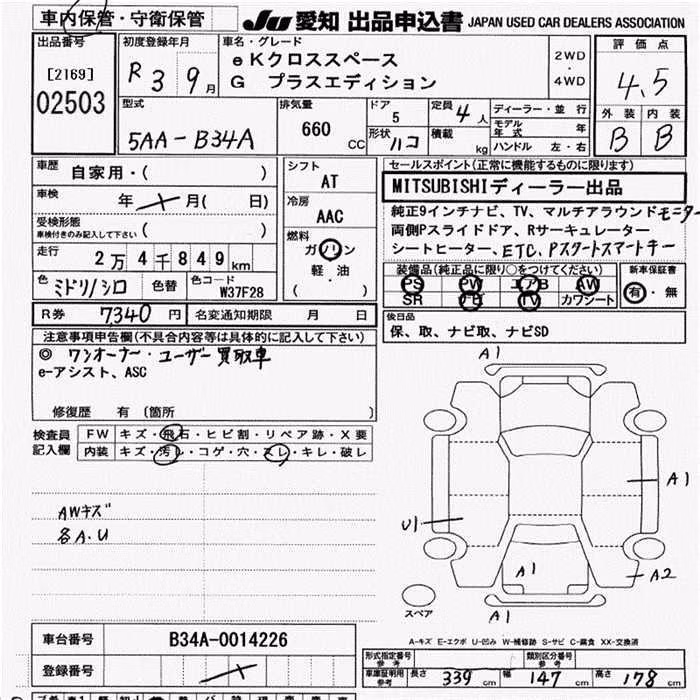 車内保管・守衛保管
JU 愛知 出品申込書 JAPAN USED CAR DEALERS ASSOCIATION
出品番号
[2169]
02503
初度登録年月
R 3 9 月
車名・グレード
eKクロススペース
G プラスエディション
2WD
・
4WD
評価点
4.5
外装 内装
B B
型式
5AA-B34A
排気量
660 CC
ドア
5
形状 ハコ
定員 4 人
積載 kg
ディーラー・並行
モデル年式 年
ハンドル 左・右
車歴 自家用・( )
車検 年 月( 日)
受検形態
車検付きのみ記入して下さい ( )
走行 2万4千849km
色 ミドリ/シロ 色替 色コード W37F28
シフト
AT
冷房
AAC
燃料
ガソリン
軽・油
( )
セールスポイント(正常に機能するものに限ります)
MITSUBISHIディーラー出品
純正9インチナビ、TV、マルチアラウンドモニター
両側Pスライドドア、Rサーキュレーター
シートヒーター、ETC、Pスタートスマートキー
装備品(純正品に限り○をつけてください)
PS PW エアB AW
SR ナビ TV カワシート
新車保証書
有・無
R券 7340円 名変通知期限 月 日
後日品
保、取、ナビ取、ナビSD
注意事項申告欄(不具合内容等は具体的に記入して下さい)
◎ ワンオーナー・ユーザー買取車
e-アシスト、ASC
修復歴 有 〔箇所 〕
検査員記入欄
FW キズ・飛石・ヒビ割・リペア跡・X要
内装 キズ・汚レ・コゲ・穴・スレ・キレ・破レ
AWキズ
各A.U
A1
A1
U1
A1
A2
A1
スペア
A-キズ E-エクボ U-凹み W-補修跡 S-サビ C-腐食 XX-交換済
車台番号 B34A-0014226
登録番号
形式指定番号
参考
類別区分番号
参考
車庫証明用
参考 長さ 339 cm 幅 147 cm 高さ 178 cm